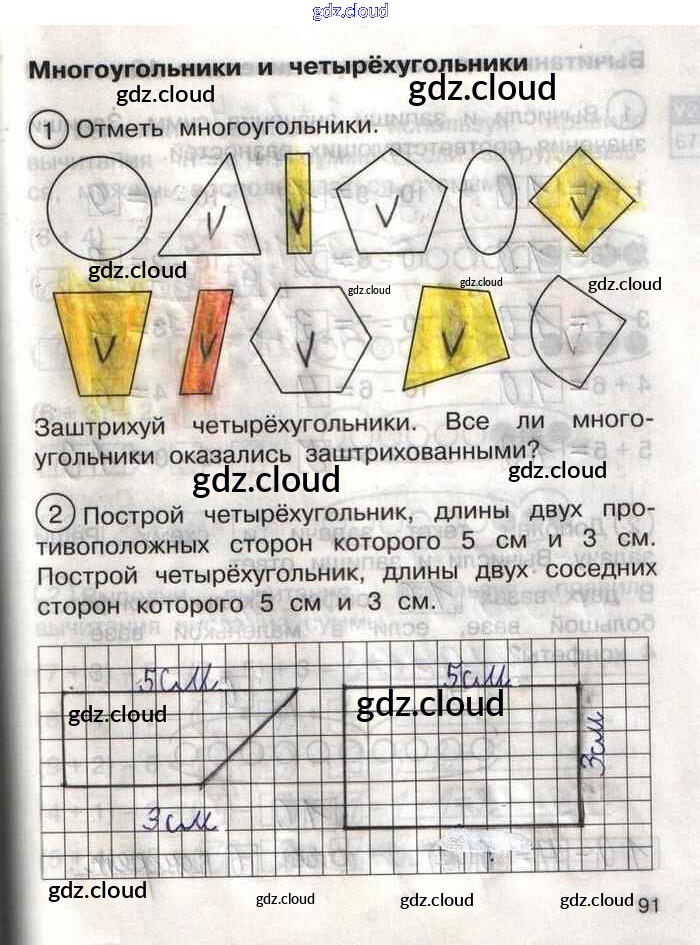 gdz.cloud
Многоугольники и четырёхугольники
gdz.cloud
gdz.cloud
1 Отметь многоугольники.
V V V V
gdz.cloud
gdz.cloud
gdz.cloud
gdz.cloud
V V V V
Заштрихуй четырёхугольники. Все ли много-
угольники оказались заштрихованными?
gdz.cloud
gdz.cloud
2 Построй четырёхугольник, длины двух про-
тивоположных сторон которого 5 см и 3 см.
Построй четырёхугольник, длины двух соседних
сторон которого 5 см и 3 см.
5 см
5 см
gdz.cloud
gdz.cloud
3 см
3 см
gdz.cloud
gdz.cloud
gdz.cloud
gdz.cloud
91